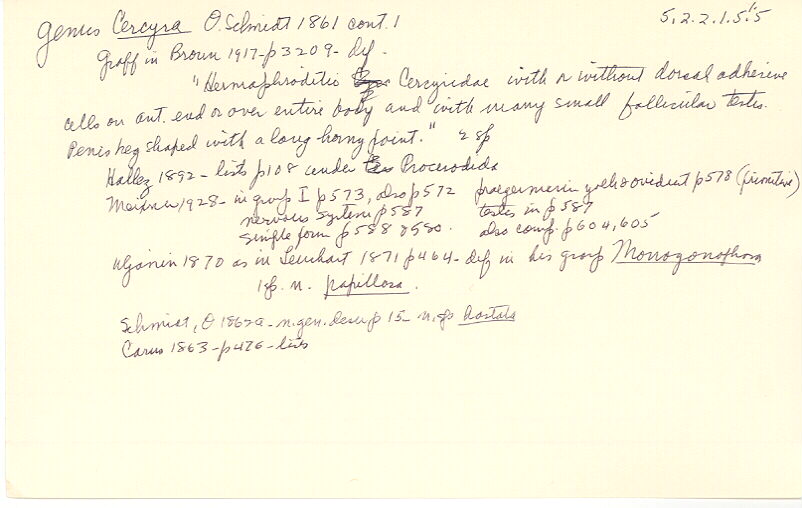 Genus Cercyra O. Schmidt 1861 cont. 1 5.2.2.1.5.5
Graff in Bronn 1917 - p 3209 - def.
"Hermaphroditic Cercyridae with or without dorsal adhesive
cells on ant. end or over entire body and with many small follicular testes.
Penis peg shaped with a long horny point." 2 sp
Hallez 1892 - lists p108 under Procerodida
Meixner 1928 - in group I p573, also p572
nervous system p587
simple form p588 &580.
praegermarin yolk & oviduct p578 (primitive)
testes in p587
also comp. p604, 605
Uljanin 1870 as in Leuckart 1871 p464 - def in his group Monogonophora
1 sp. n. papillosa.
Schmidt, O 1862a - n. gen. descr p 15 - n. sp hastata
Carus 1863 - p476 - lists